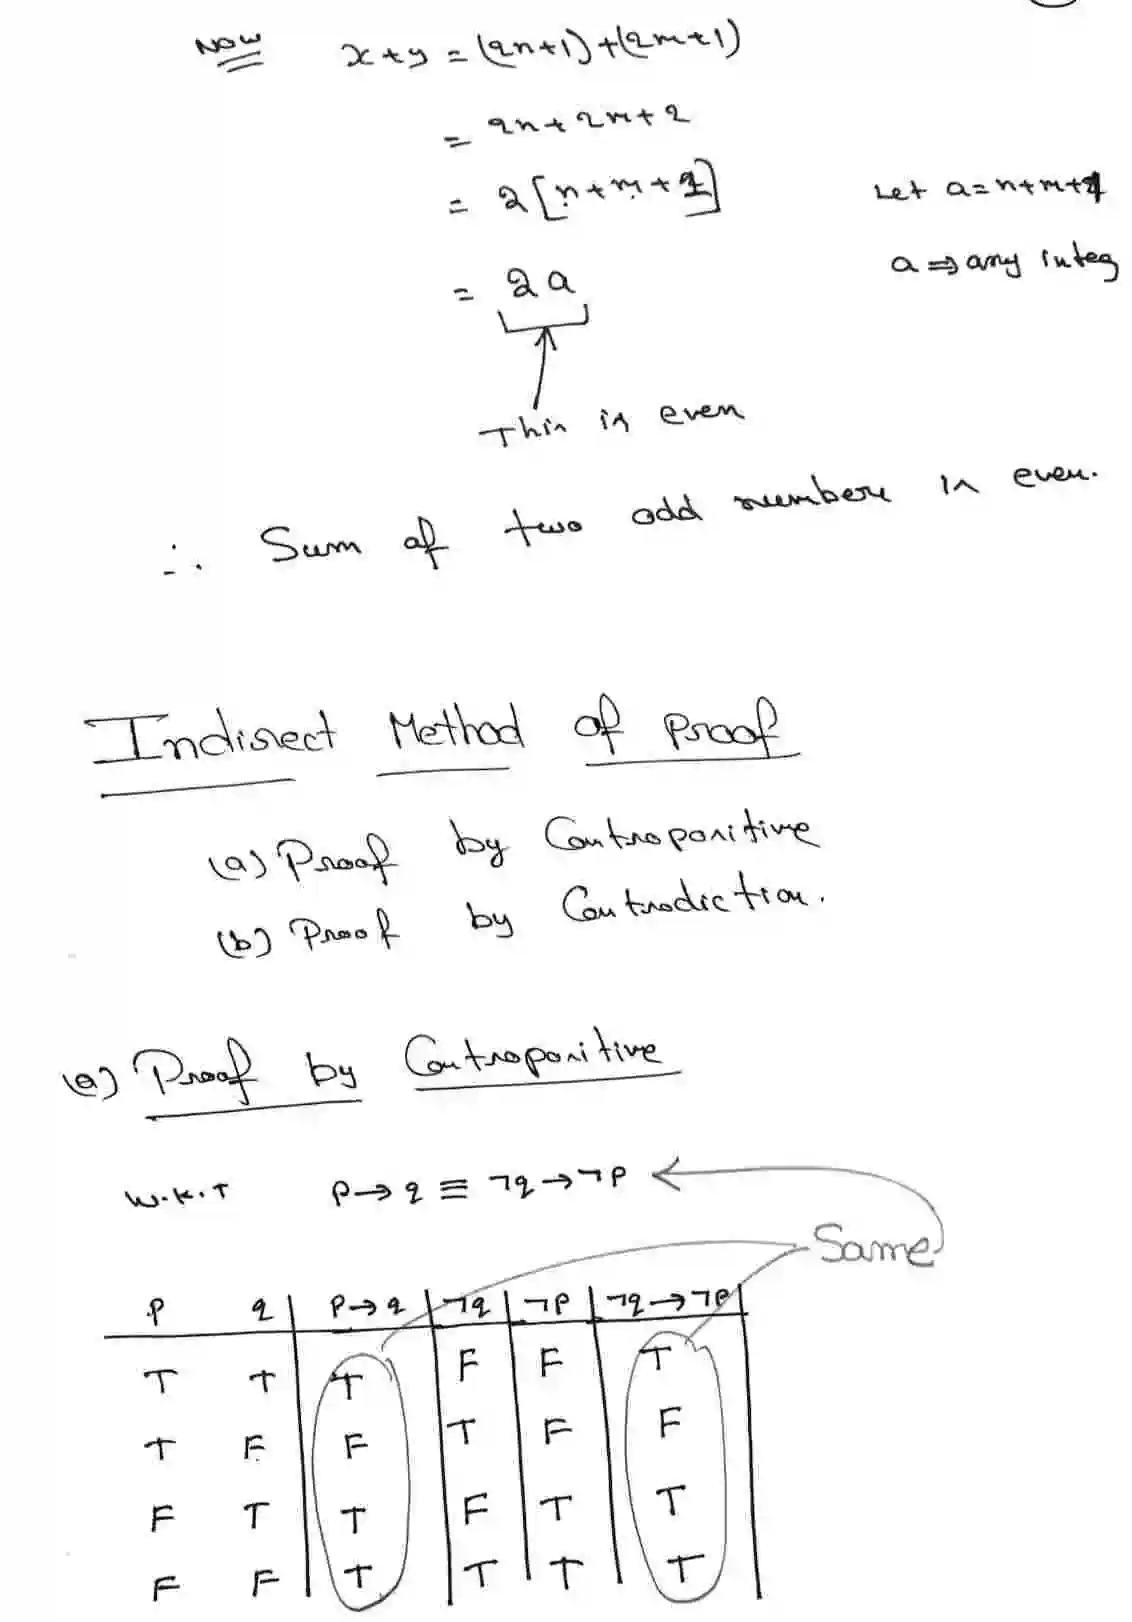 Now x+y = (2n+1)+(2m+1)
= 2n+2m+2
= 2[n+m+1] Let a=n+m+1
= 2a a⇒any integ
This is even
∴ Sum of two odd numbers is even.
Indirect Method of Proof
(a) Proof by Contrapositive
(b) Proof by Contradiction.
(a) Proof by Contrapositive
W.K.T P→q ≡ ¬q→¬P
Same
P q P→q ¬q ¬P ¬q→¬P
T T T F F T
T F F T F F
F T T F T T
F F T T T T